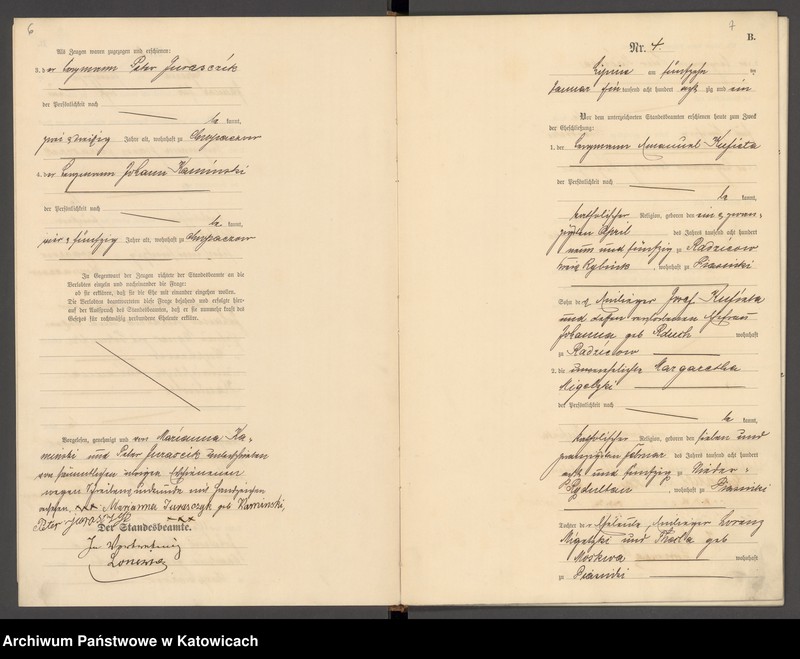 6
Als Zeugen waren zugezogen und erschienen:
3. der Bergmann Peter Jurasczik
der Persönlichkeit nach
be kannt,
zwei & dreißig Jahre alt, wohnhaft zu Chropaczow
4. der Bergmann Johann Kaminski
der Persönlichkeit nach
be kannt,
vier & fünfzig Jahre alt, wohnhaft zu Chropaczow
In Gegenwart der Zeugen richtete der Standesbeamte an die
Verlobten einzeln und nacheinander die Frage:
ob sie erklären, daß sie die Ehe mit einander eingehen wollen.
Die Verlobten beantworteten diese Frage bejahend und erfolgte hier-
auf der Ausspruch des Standesbeamten, daß er sie nunmehr kraft des
Gesetzes für rechtmäßig verbundene Eheleute erkläre.
Vorgelesen, genehmigt und von Marianna Ka-
minski und Peter Jurascik unterschrieben
von sämmtlichen übrigen Erschienenen
wegen Schreibensunkunde mit Handzeichen
versehen. xxx Maryanna Jurasczyk geb Kaminski,
Peter
Der Standesbeamte.
xxx
In Vertretung
7
B.
Nr. 4.
Lipine am fünfzehn ten
Januar Ein tausend acht hundert acht zig und ein
Vor dem unterzeichneten Standesbeamten erschienen heute zum Zweck
der Eheschließung:
1. der Bergmann Emanuel Kufieta
der Persönlichkeit nach
be kannt,
katholischer Religion, geboren den ein & zwan-
zigsten April des Jahres tausend acht hundert
neun und fünfzig zu Radzieow
Kreis Rybnik, wohnhaft zu Piasniki
Sohn des Josef Kufieta
und dessen verstorbenen Ehefrau
Johanna geb wohnhaft
zu Radzieow
2. die unverehelichte Margaretha
Migalzki
der Persönlichkeit nach
be kannt,
katholischer Religion, geboren den sieben und
zwanzigsten Februar des Jahres tausend acht hundert
acht und fünfzig zu Nieder-
Rydultau, wohnhaft zu Piasniki
Tochter der Eheleute, Lorenz
Migalzki und Thekla geb
Moskwa wohnhaft
zu Piasniki
Archiwum Państwowe w Katowicach